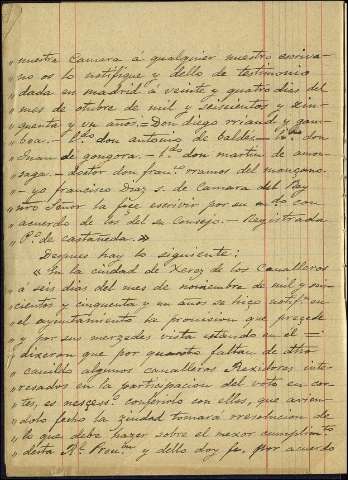 nuestra Camara á qualquier nuestro escriva-
" no os lo notifique y dello de testimonio
" dada en madrid á veinte y quatro dias del
" mes de otubre de mil y seiscientos y zin-
" quenta y un años.= Don diego rriaño y gam-
" boa.- L.do don antonio de Valdes - L.do don
" Juan de gongora. - L.do don martin de arnou-
" saga. - dostor don fran.co rramos del manzano.
" - yo francisco Diaz s. de Camara del Rey
" nrõ Señor la fice escrivir por su m.do con
" acuerdo de los del su Consejo.- Registrada
P.o de castañeda.»
Despues hay lo siguiente:
" « En la ciudad de Xerez de los Cavalleros
" á seis dias del mes de noviembre de mil y seis-
" cientos y cinquenta y un años se hiço notif.on en
" el ayuntamiento la provision que preçede
" y por sus merzedes vista estando en él -
" dixeron que por quanto faltan de dho
" cavildo algunos cavalleros Rexidores inte-
" resados en la participacion del voto en cor-
" tes, es nesçes.o conferirlo con ellos, que avien-
" dolo fecho la ziudad tomará rresolucion de
" lo que debe hazer sobre el mexor cumplim.to
" desta R.l Prov.on y dello doy fe, por acuerdo